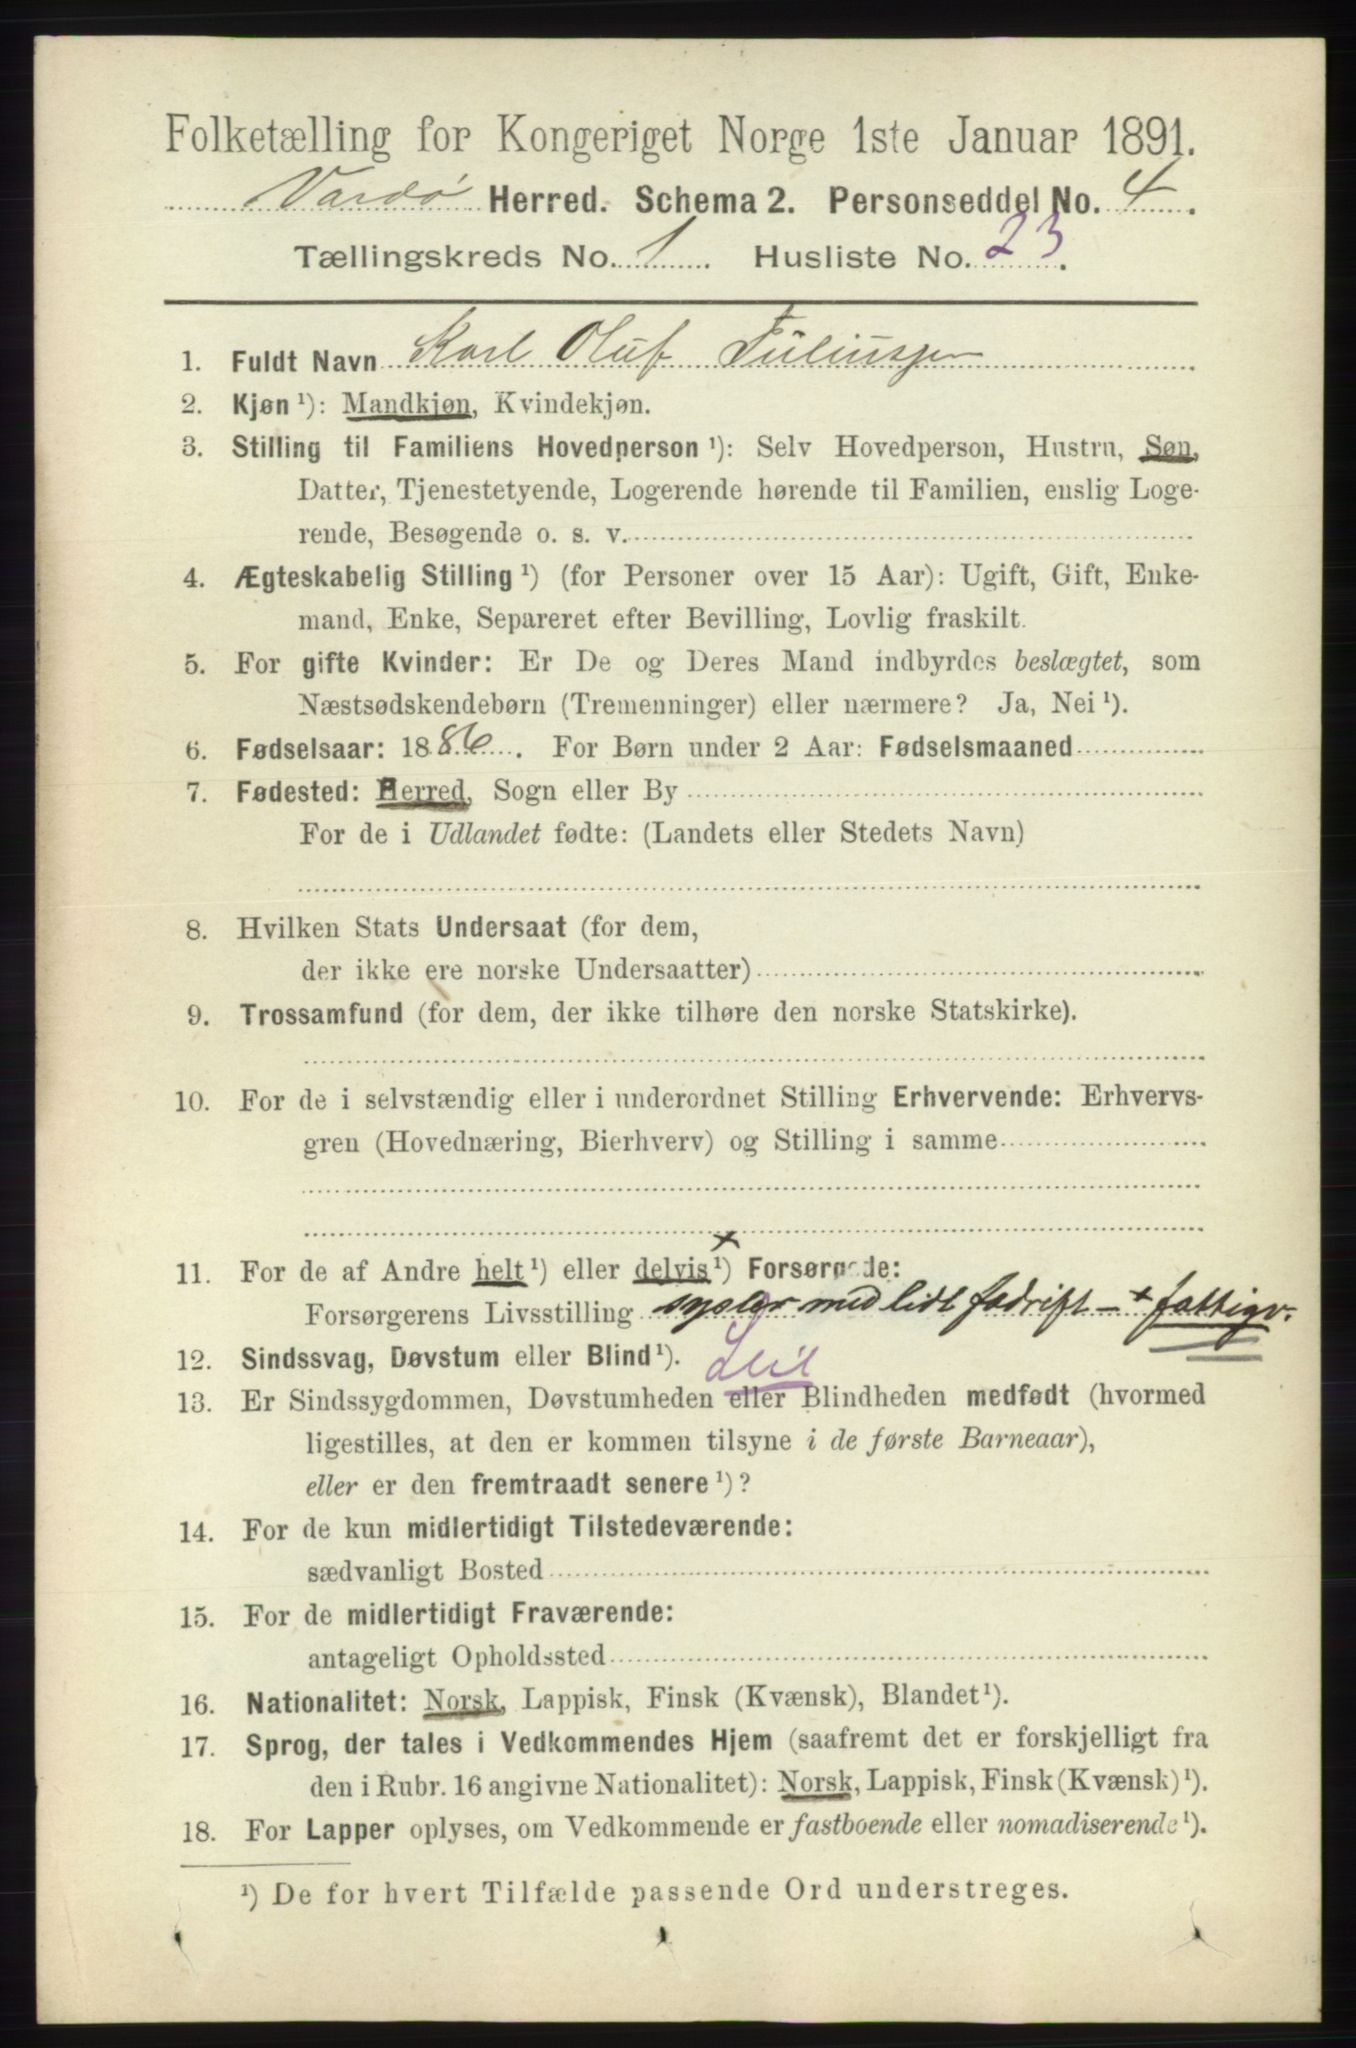 Folketælling for Kongeriget Norge 1ste Januar 1891.
Vardø Herred. Schema 2. Personseddel No. 4.
Tællingskreds No. 1. Husliste No. 23.
1. Fuldt Navn Karl Oluf Juliussen
2. Kjøn ¹): Mandkjøn, Kvindekjøn.
3. Stilling til Familiens Hovedperson ¹): Selv Hovedperson, Hustru, Søn,
Datter, Tjenestetyende, Logerende hørende til Familien, enslig Loge-
rende, Besøgende o. s. v.
4. Ægteskabelig Stilling ¹) (for Personer over 15 Aar): Ugift, Gift, Enke-
mand, Enke, Separeret efter Bevilling, Lovlig fraskilt.
5. For gifte Kvinder: Er De og Deres Mand indbyrdes beslægtet, som
Næstsødskendebørn (Tremenninger) eller nærmere? Ja, Nei ¹).
6. Fødselsaar: 1886. For Børn under 2 Aar: Fødselsmaaned
7. Fødested: Herred, Sogn eller By
For de i Udlandet fødte: (Landets eller Stedets Navn)
8. Hvilken Stats Undersaat (for dem,
der ikke ere norske Undersaatter)
9. Trossamfund (for dem, der ikke tilhøre den norske Statskirke).
10. For de i selvstændig eller i underordnet Stilling Erhvervende: Erhvervs-
gren (Hovednæring, Bierhverv) og Stilling i samme
+
11. For de af Andre helt ¹) eller delvis ¹) Forsørgede:
Forsørgerens Livsstilling sysler med lidt fædrift — + fattigv.
12. Sindssvag, Døvstum eller Blind ¹).
13. Er Sindssygdommen, Døvstumheden eller Blindheden medfødt (hvormed
ligestilles, at den er kommen tilsyne i de første Barneaar),
eller er den fremtraadt senere ¹)?
14. For de kun midlertidigt Tilstedeværende:
sædvanligt Bosted
15. For de midlertidigt Fraværende:
antageligt Opholdssted
16. Nationalitet: Norsk, Lappisk, Finsk (Kvænsk), Blandet ¹).
17. Sprog, der tales i Vedkommendes Hjem (saafremt det er forskjelligt fra
den i Rubr. 16 angivne Nationalitet): Norsk, Lappisk, Finsk (Kvænsk) ¹).
18. For Lapper oplyses, om Vedkommende er fastboende eller nomadiserende ¹).
¹) De for hvert Tilfælde passende Ord understreges.